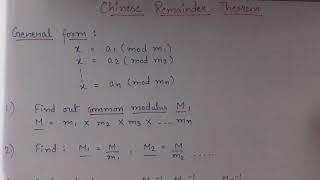 Chinese Remainder Theorem
General form:
x = a₁ (mod m₁)
x = a₂ (mod m₂)
⋮
x = an (mod mn)
1) Find out common modulus M,
M = m₁ × m₂ × m₃ × ... mn
2) Find : M₁ = M/m₁ , M₂ = M/m₂ .....